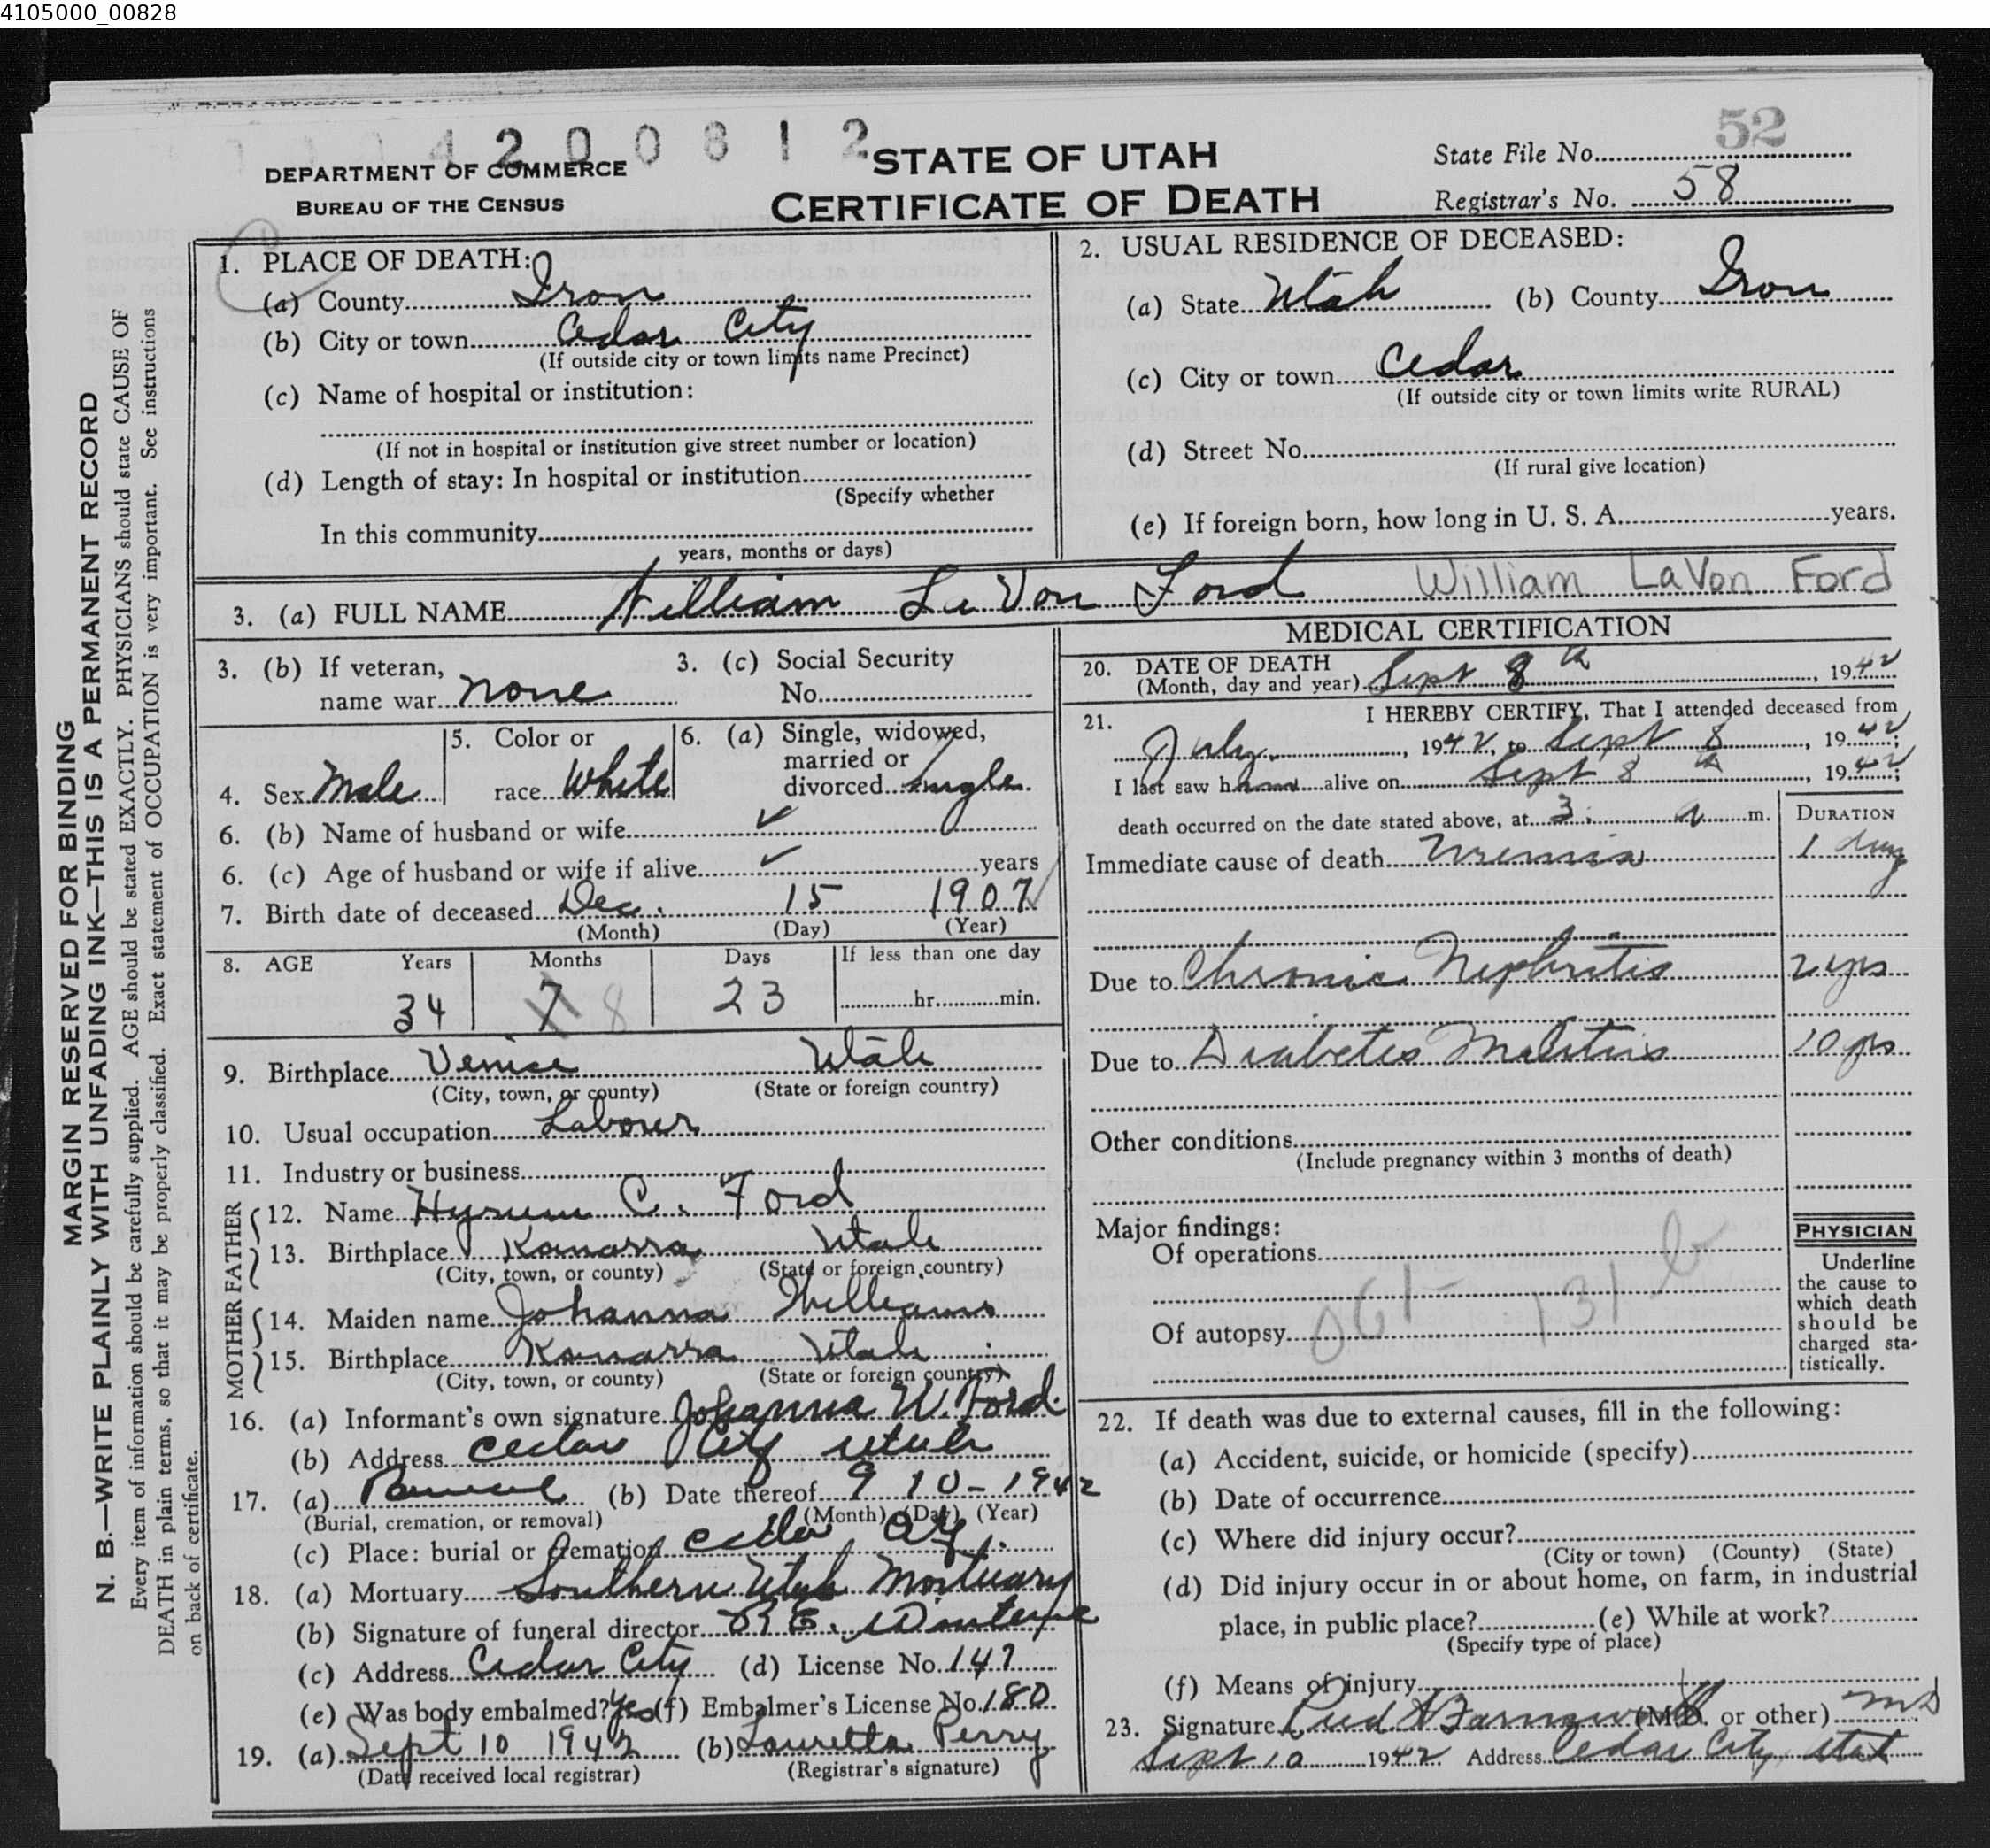 4105000_00828
4 2 0 0 8 1 2
52
DEPARTMENT OF COMMERCE
BUREAU OF THE CENSUS
STATE OF UTAH
CERTIFICATE OF DEATH
State File No.
Registrar's No. 58
1. PLACE OF DEATH:
(a) County Iron
(b) City or town Cedar City
(If outside city or town limits name Precinct)
(c) Name of hospital or institution:
(If not in hospital or institution give street number or location)
(d) Length of stay: In hospital or institution
(Specify whether
In this community
years, months or days)
2. USUAL RESIDENCE OF DECEASED:
(a) State Utah (b) County Iron
(c) City or town Cedar
(If outside city or town limits write RURAL)
(d) Street No.
(If rural give location)
(e) If foreign born, how long in U. S. A. years.
3. (a) FULL NAME William La Von Ford William LaVon Ford
3. (b) If veteran,
name war none
3. (c) Social Security
No.
4. Sex Male
5. Color or
race White
6. (a) Single, widowed,
married or
divorced single
6. (b) Name of husband or wife ✓
6. (c) Age of husband or wife if alive ✓ years
7. Birth date of deceased Dec. 15 1907
(Month) (Day) (Year)
8. AGE Years Months Days If less than one day
34 7 8 23 hr. min.
9. Birthplace Venice Utah
(City, town, or county) (State or foreign country)
10. Usual occupation Laborer
11. Industry or business
FATHER
12. Name Hyrum C. Ford
13. Birthplace Kanarra Utah
(City, town, or county) (State or foreign country)
MOTHER
14. Maiden name Johanna Williams
15. Birthplace Kanarra Utah
(City, town, or county) (State or foreign country)
16. (a) Informant's own signature Johanna W. Ford
(b) Address Cedar City Utah
17. (a) Burial (b) Date thereof 9 10 - 1942
(Burial, cremation, or removal) (Month) (Day) (Year)
(c) Place: burial or cremation Cedar City.
18. (a) Mortuary Southern Utah Mortuary
(b) Signature of funeral director R. E.
(c) Address Cedar City (d) License No. 147
(e) Was body embalmed? Yes (f) Embalmer's License No. 180
19. (a) Sept 10 1942 (b) Lauretta Perry
(Date received local registrar) (Registrar's signature)
MEDICAL CERTIFICATION
20. DATE OF DEATH
(Month, day and year) Sept 8 th, 1942
21. I HEREBY CERTIFY, That I attended deceased from
July, 1942, to Sept 8, 1942;
I last saw h him alive on Sept 8 th, 1942;
death occurred on the date stated above, at 3: a m.
DURATION
Immediate cause of death Uremia 1 day
Due to Chronic Nephritis 2 yrs
Due to Diabetes Melitus 10 yrs
Other conditions
(Include pregnancy within 3 months of death)
Major findings:
Of operations
061 - 131 b
Of autopsy
PHYSICIAN
Underline
the cause to
which death
should be
charged sta-
tistically.
22. If death was due to external causes, fill in the following:
(a) Accident, suicide, or homicide (specify)
(b) Date of occurrence
(c) Where did injury occur?
(City or town) (County) (State)
(d) Did injury occur in or about home, on farm, in industrial
place, in public place? (e) While at work?
(Specify type of place)
(f) Means of injury
23. Signature (M.D. or other) MD
Sept 10 1942 Address Cedar City, Utah
MARGIN RESERVED FOR BINDING
N. B.—WRITE PLAINLY WITH UNFADING INK—THIS IS A PERMANENT RECORD
Every item of information should be carefully supplied. AGE should be stated EXACTLY. PHYSICIANS should state CAUSE OF
DEATH in plain terms, so that it may be properly classified. Exact statement of OCCUPATION is very important. See instructions
on back of certificate.